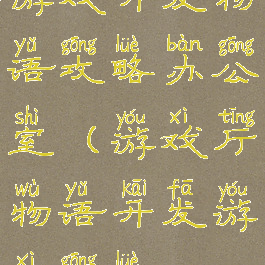 游戏开发物
yǔ gōng lüè bàn gōng
语攻略办公
shì yóu xì tīng
室（游戏厅
wù yǔ kāi fā yóu
物语开发游
xì gōng lüè